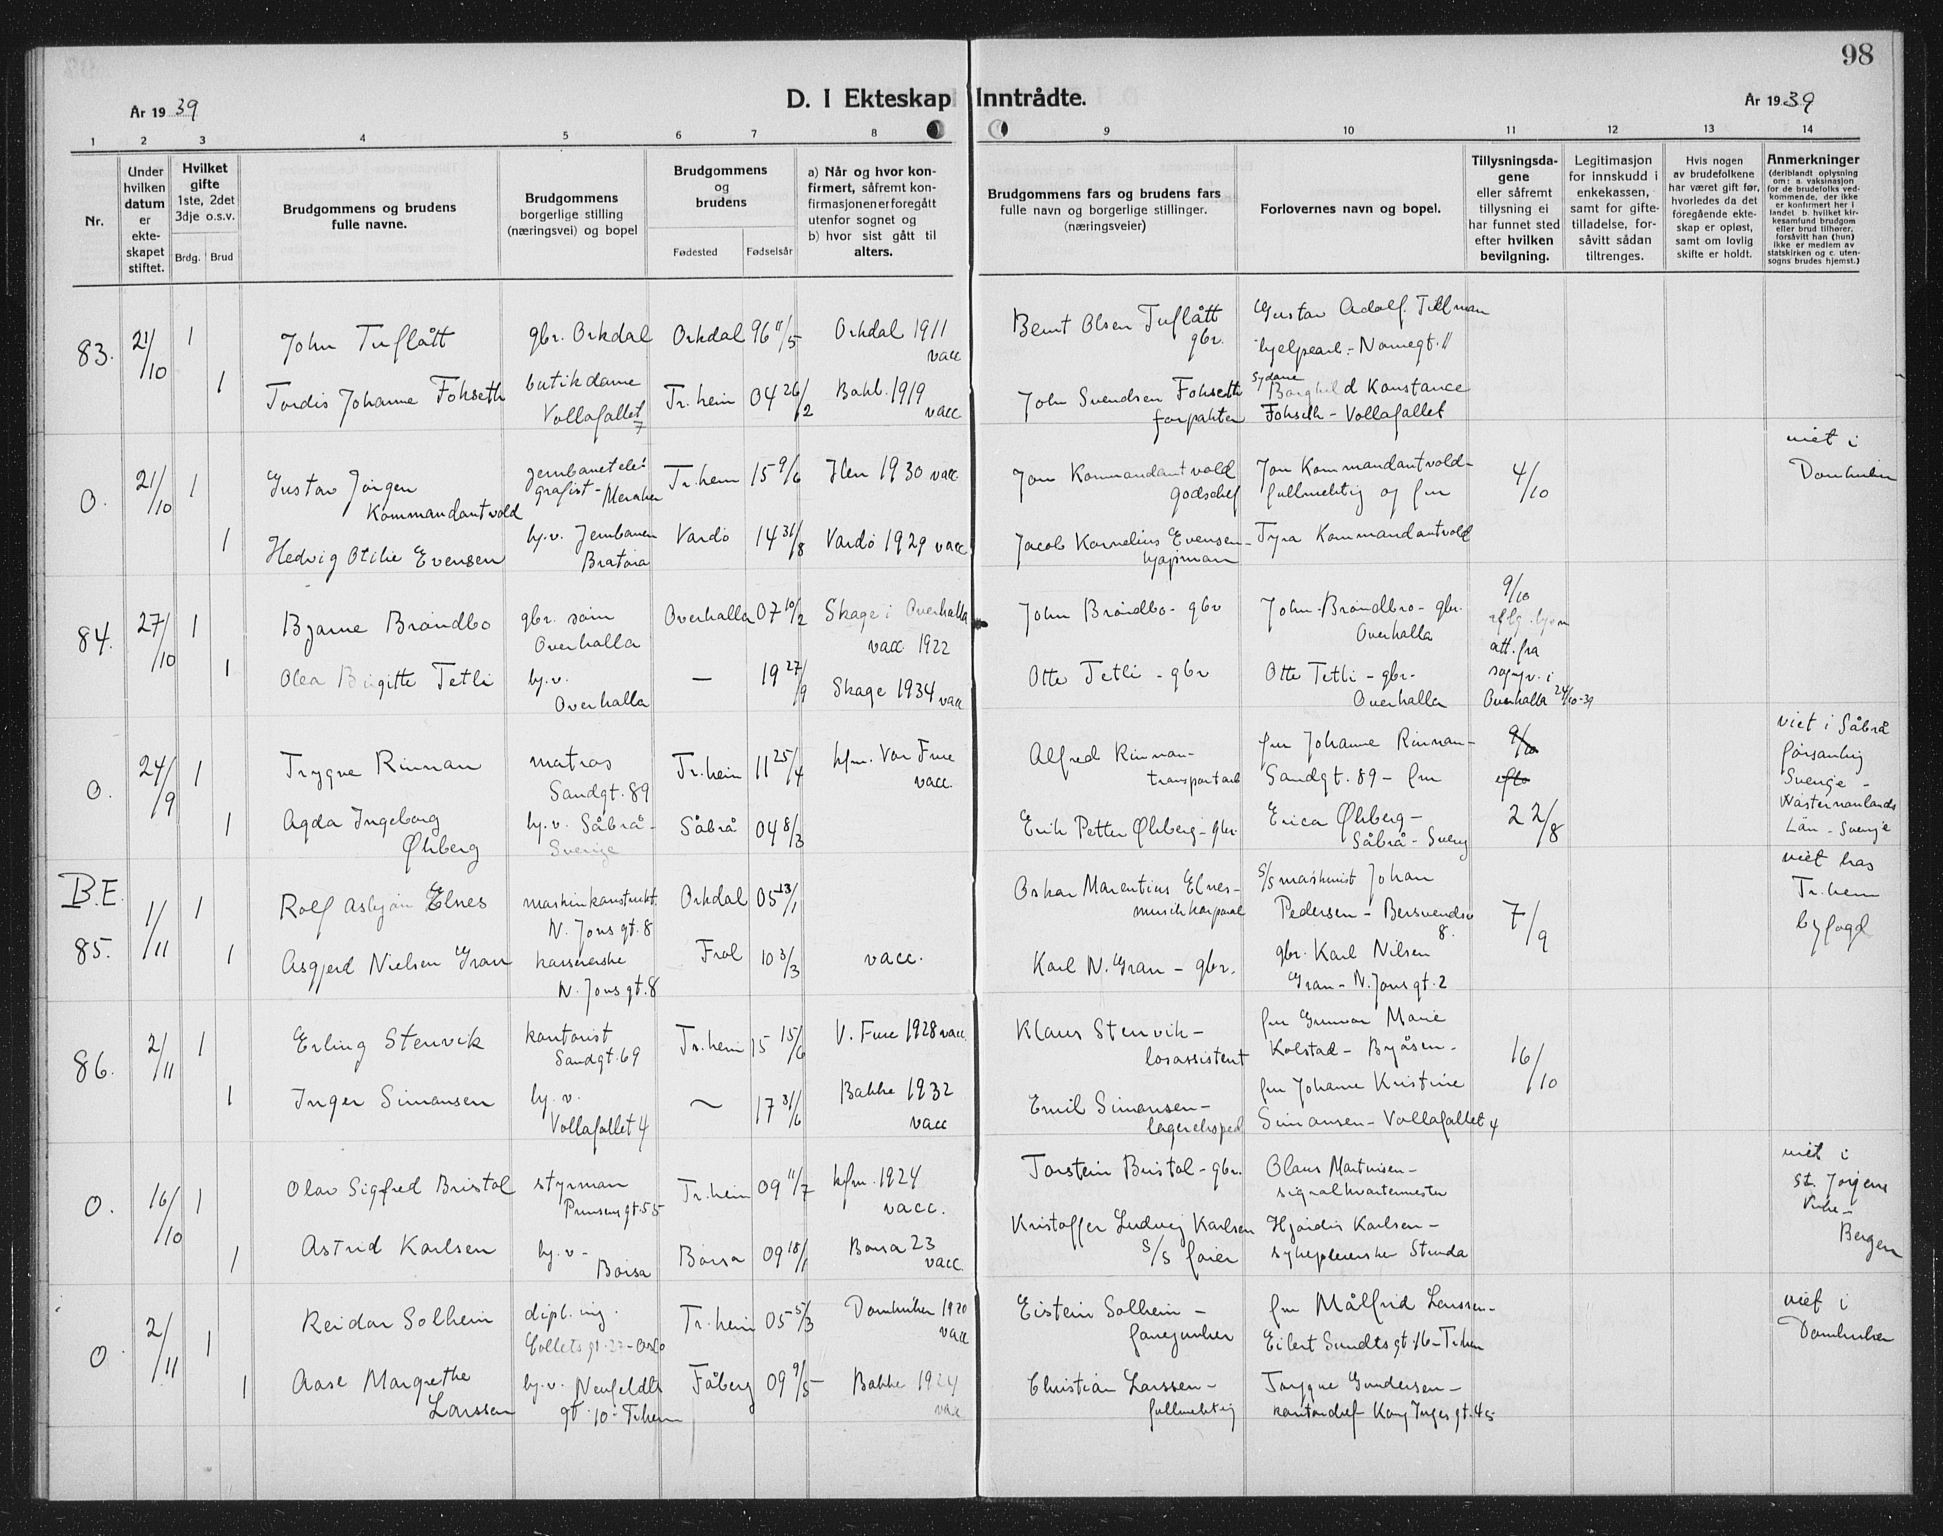 98
År 1939
D. I Ekteskap Inntrådte.
År 1939
1 2 3 4 5 6 7 8 9 10 11 12 13 14
Nr.
Under hvilken datum er ekteskapet stiftet.
Hvilket gifte 1ste, 2det 3dje o.s.v.
Brdg. Brud
Brudgommens og brudens fulle navne.
Brudgommens borgerlige stilling (næringsvei) og bopel
Brudgommens og brudens
Fødested Fødselsår
a) Når og hvor konfirmert, såfremt konfirmasjonen er foregått utenfor sognet og
b) hvor sist gått til alters.
Brudgommens fars og brudens fars fulle navn og borgerlige stillinger. (næringsveier)
Forlovernes navn og bopel.
Tillysningsdagene eller såfremt tillysning ei har funnet sted efter hvilken bevilgning.
Legitimasjon for innskudd i enkekassen, samt for giftetilladelse, forsåvitt sådan tiltrenges.
Hvis nogen av brudefolkene har været gift før, hvorledes da det foregående ekteskap er opløst, samt om lovlig skifte er holdt.
Anmerkninger (deriblandt oplysning om: a. vaksinasjon for de brudefolks vedkommende, der ikke er konfirmert her i landet b. hvilket kirkesamfund brudgom eller brud tilhører, forsåvitt han (hun) ikke er medlem av statskirken og c. utensogns brudes hjemst.)
83. 21/10 1 John Tuflått gbr. Orkdal Orkdal 96 11/5 Orkdal 1911 vacc
Bernt Olsen Tuflått gbr. Gustav Adolf Tillman hjelpearb. - Nornegt. 11
1 Tordis Johanne Fokseth butikdame Vollafallet 7 Tr.heim 04 26/2 Bakl. 1919 vacc
John Svendsen Fokseth forpakter sydame Borghild Konstance Fokseth - Vollafallet
O. 21/10 1 Gustav Jørgen Kommandantvold jernbanetelegrafist - Meraker Tr.heim 15 9/6 Ilen 1930 vacc
Jon Kommandantvold godschef Jon Kommandantvold - fullmektig og fru 4/10 viet i Domkirken
1 Hedvig Otilie Evensen hj.v. Jernbanen Brattøra Vardø 14 31/8 Vardø 1929 vacc
Jacob Kornelius Evensen - kjøpmann Tyra Kommandantvold
84. 27/10 1 Bjarne Brøndbo gbr. søn Overhalla Overhalla 07 10/2 Skage i Overhalla vacc. 1922
John Brøndbo - gbr John Brøndbro - gbr. Overhalla 9/10
1 Olea Birgitte Tetli hj.v. Overhalla — 19 27/9 Skage 1934 vacc
Otte Tetli - gbr Otte Tetli - gbr - Overhalla att. fra sogn.pr. i Overhalla 24/10-39
O. 24/9 1 Trygve Rinnan matros Sandgt. 89 Tr.heim 11 25/4 kfm. Vor Frue vacc.
Alfred Rinnan - transportarb fru Johanne Rinnan - Sandgt. 89 - fru 9/10 viet i Såbrå församling Sverige - Västernorrlands Län - Sverige
1 Agda Ingeborg Øhberg hj.v. Såbrå - Sverige Såbrå 04 8/3
Erik Petter Øhberg - gbr. Erica Øhberg - Såbrå - Sverig 22/8
B.E. 85. 1/11 1 Rolf Asbjørn Elnes maskinkonstrukt. N. Jonsgt. 8 Orkdal 05 13/1
Oskar Marentius Elnes - musikkorporal s/s maskinist Johan Pedersen - Bersvendsv 8. 7/9 viet hos Tr.heim byfogd
1 Asgjerd Nielsen Gran kassererske N. Jonsgt. 8 Frol 10 3/3 vacc.
Karl N. Gran - gbr. gbr. Karl Nilsen Gran - N. Jonsgt. 2
86. 2/11 1 Erling Stenvik kontorist Sandgt. 69 Tr.heim 15 15/6 V. Frue 1928 vacc
Klaus Stenvik - losassistent fru Gunvor Marie Kolstad - Byåsen - 16/10
1 Inger Simonsen hj.v. Vollafallet 4 — 17 31/6 Bakke 1932 vacc
Emil Simonsen - lagereksped fru Johanne Kristine Simonsen - Vollafallet 4
O. 16/10 1 Olav Sigfred Bristol styrman Prinsensgt. 55 Tr.heim 09 11/7 kfm. 1924 vacc.
Torstein Bristol - gbr. Olaus Martinsen - signalkvartermester viet i St. Jørgens kirke - Bergen
1 Astrid Karlsen hj.v - Børsa Børsa 09 18/1 Børsa 23 vacc.
Kristoffer Ludvig Karlsen s/s fører Hjørdis Karlsen - sykepleierske
O 2/11 1 Reidar Solheim dipl. ing. Colletsgt. - Oslo Tr.heim 05 5/3 Domkirken 1920 vacc
Eistein Solheim - fanejunker fru Målfrid Larssen - Eilert Sundtsgt. 16 - Tr.heim viet i Domkirken
1 Aase Margrethe Larssen hj.v. Neufeldts gt. 10 - Tr.heim Fåberg 09 9/5 Bakke 1924 vacc
Christian Larssen - fullmektig Trygve Gundersen - kontorchef Kong Ingesgt. 45